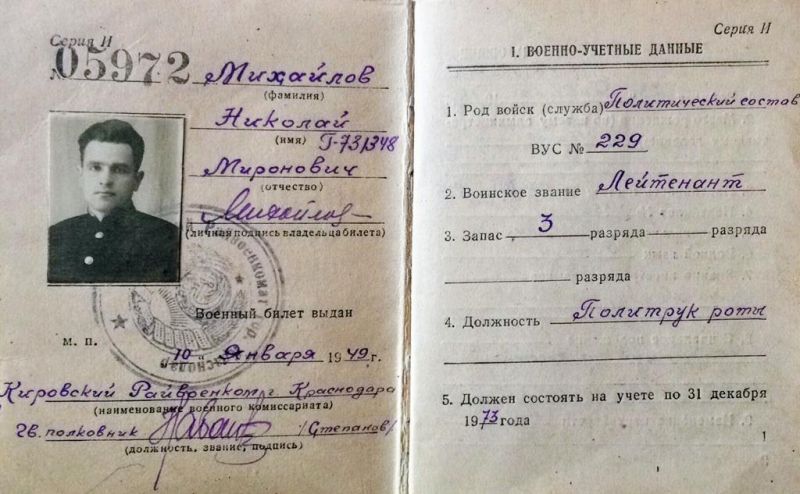 Серия И
№ 05972
Михайлов
(фамилия)
Николай
(имя) Г-731348
Миронович
(отчество)
Михайлов
(личная подпись владельца билета)
Военный билет выдан
м. п.
"10" Января 1949 г.
Кировский Райвоенком г. Краснодара
(наименование военного комиссариата)
Гв. полковник /Степанов/
(должность, звание, подпись)
Серия И
1. ВОЕННО-УЧЕТНЫЕ ДАННЫЕ
1. Род войск (служба) Политический состав
ВУС № 229
2. Воинское звание Лейтенант
3. Запас 3 разряда разряда
разряда
4. Должность Политрук роты
5. Должен состоять на учете по 31 декабря
1973 года
1